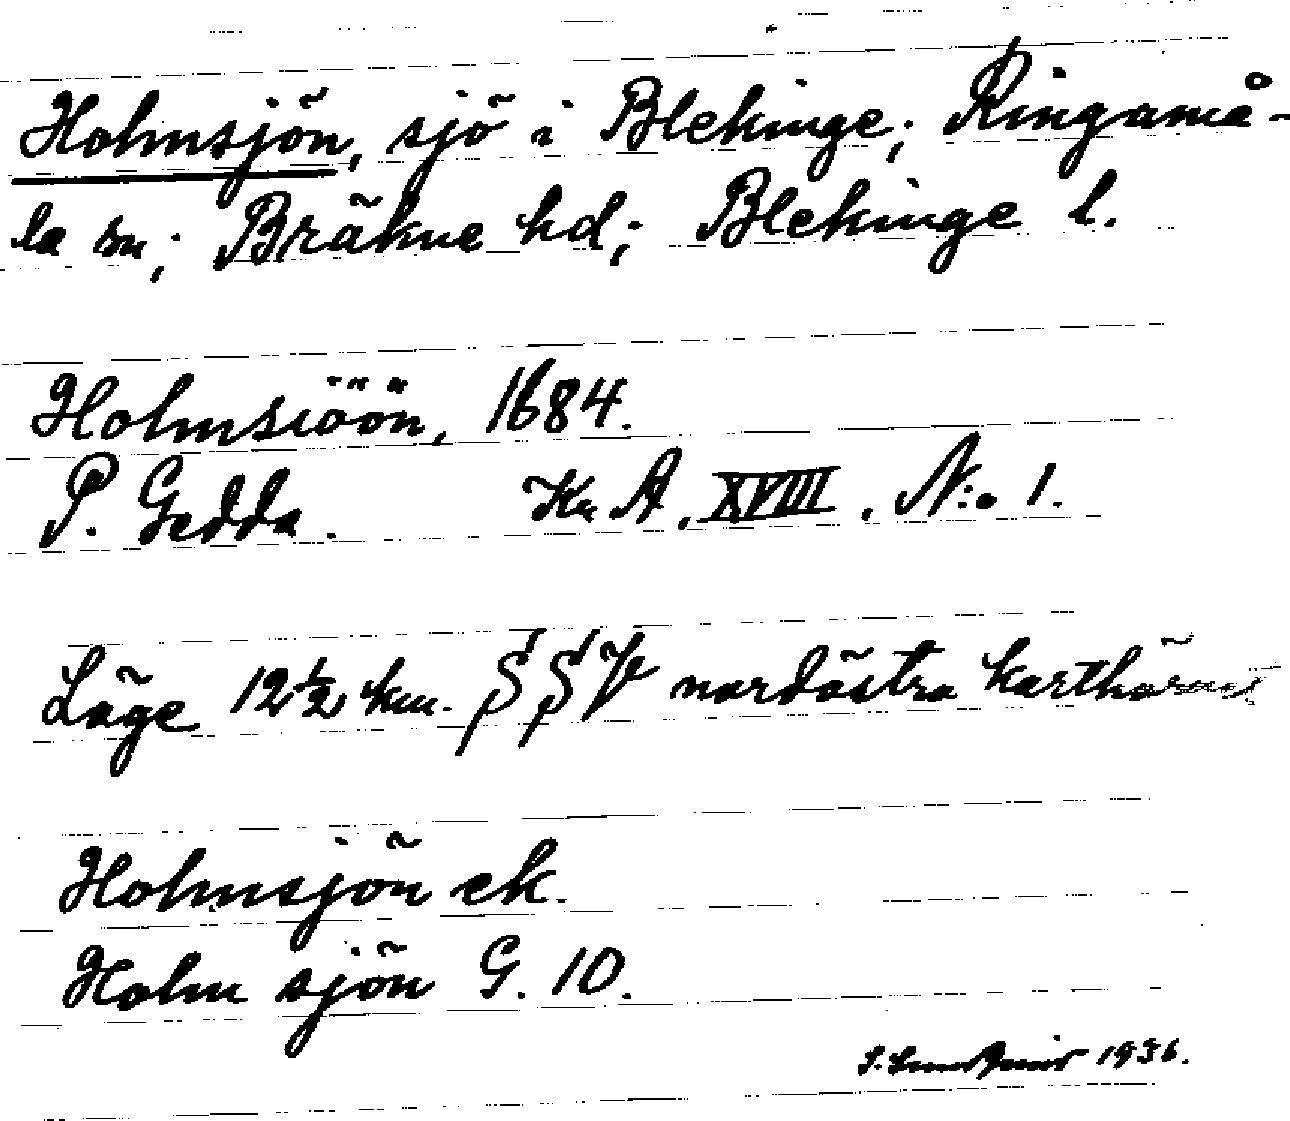 Holmsjön, sjö i Blekinge; Ringamå-
la sn; Bräkne hd; Blekinge l.
Holmsiöön, 1684.
P. Gedda. Kr A, XVIII, N:o 1.
Läge 12½ km. SSV nordöstra karthörnet
Holmsjön ek.
Holm sjön G. 10.
1936.